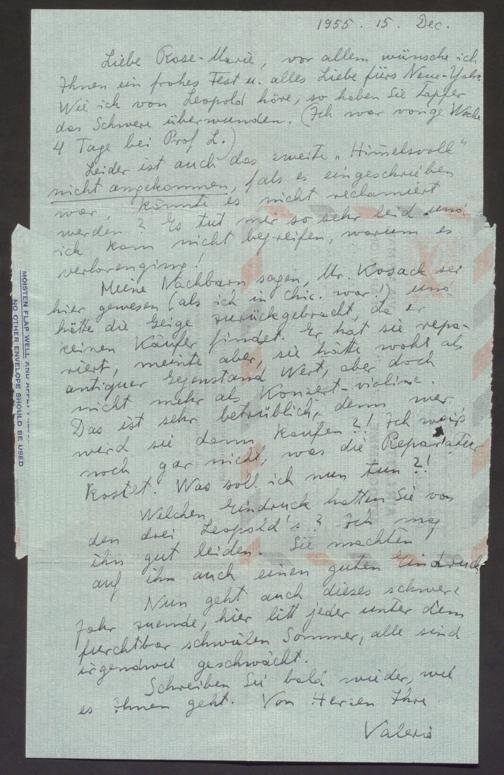 1955. 15. Dec.
Liebe Rose-Marie, vor allem wünsche ich
Ihnen ein frohes Fest u. alles Liebe fürs Neue Jahr.
Wie ich von Leopold höre, so haben Sie tapfer
das Schwere überwunden. (Ich war vorige Woche
4 Tage bei Prof L.)
Leider ist auch das zweite „Himelsvoll"
nicht angekommen, fals es eingeschrieben
war, könnte es nicht reclamiert
werden? Es tut mir so sehr leid und
ich kann nicht begreifen, warum es
verlorenging!
Meine Nachbarn sagen, Mr. Kosack sei
hier gewesen (als ich in Chic. war!) und
hätte die Geige zurückgebracht, da er
keinen Käufer findet. Er hat sie repa-
riert, meinte aber, sie hätte wohl als
antiquer Gegenstand Wert, aber doch
nicht mehr als Konzert-violine.
Das ist sehr betrüblich, denn wer
wird sie dann kaufen?! Ich weiss
noch gar nicht, was die Reparatur
kostet. Was soll ich nun tun?!
Welchen Eindruck hatten Sie von
den drei Leopold's? Ich mag
ihn gut leiden. Sie machten
auf ihn auch einen guten Eindruck
Nun geht auch dieses schwere
Jahr zuende, hier litt jeder unter dem
furchtbar schwülen Sommer, alle sind
irgendwie geschwächt.
Schreiben Sie bald wieder, wie
es Ihnen geht. Von Herzen Ihre
Valerie
MOISTEN FLAP WELL AND
NO OTHER ENVELOPE SHOULD BE USED